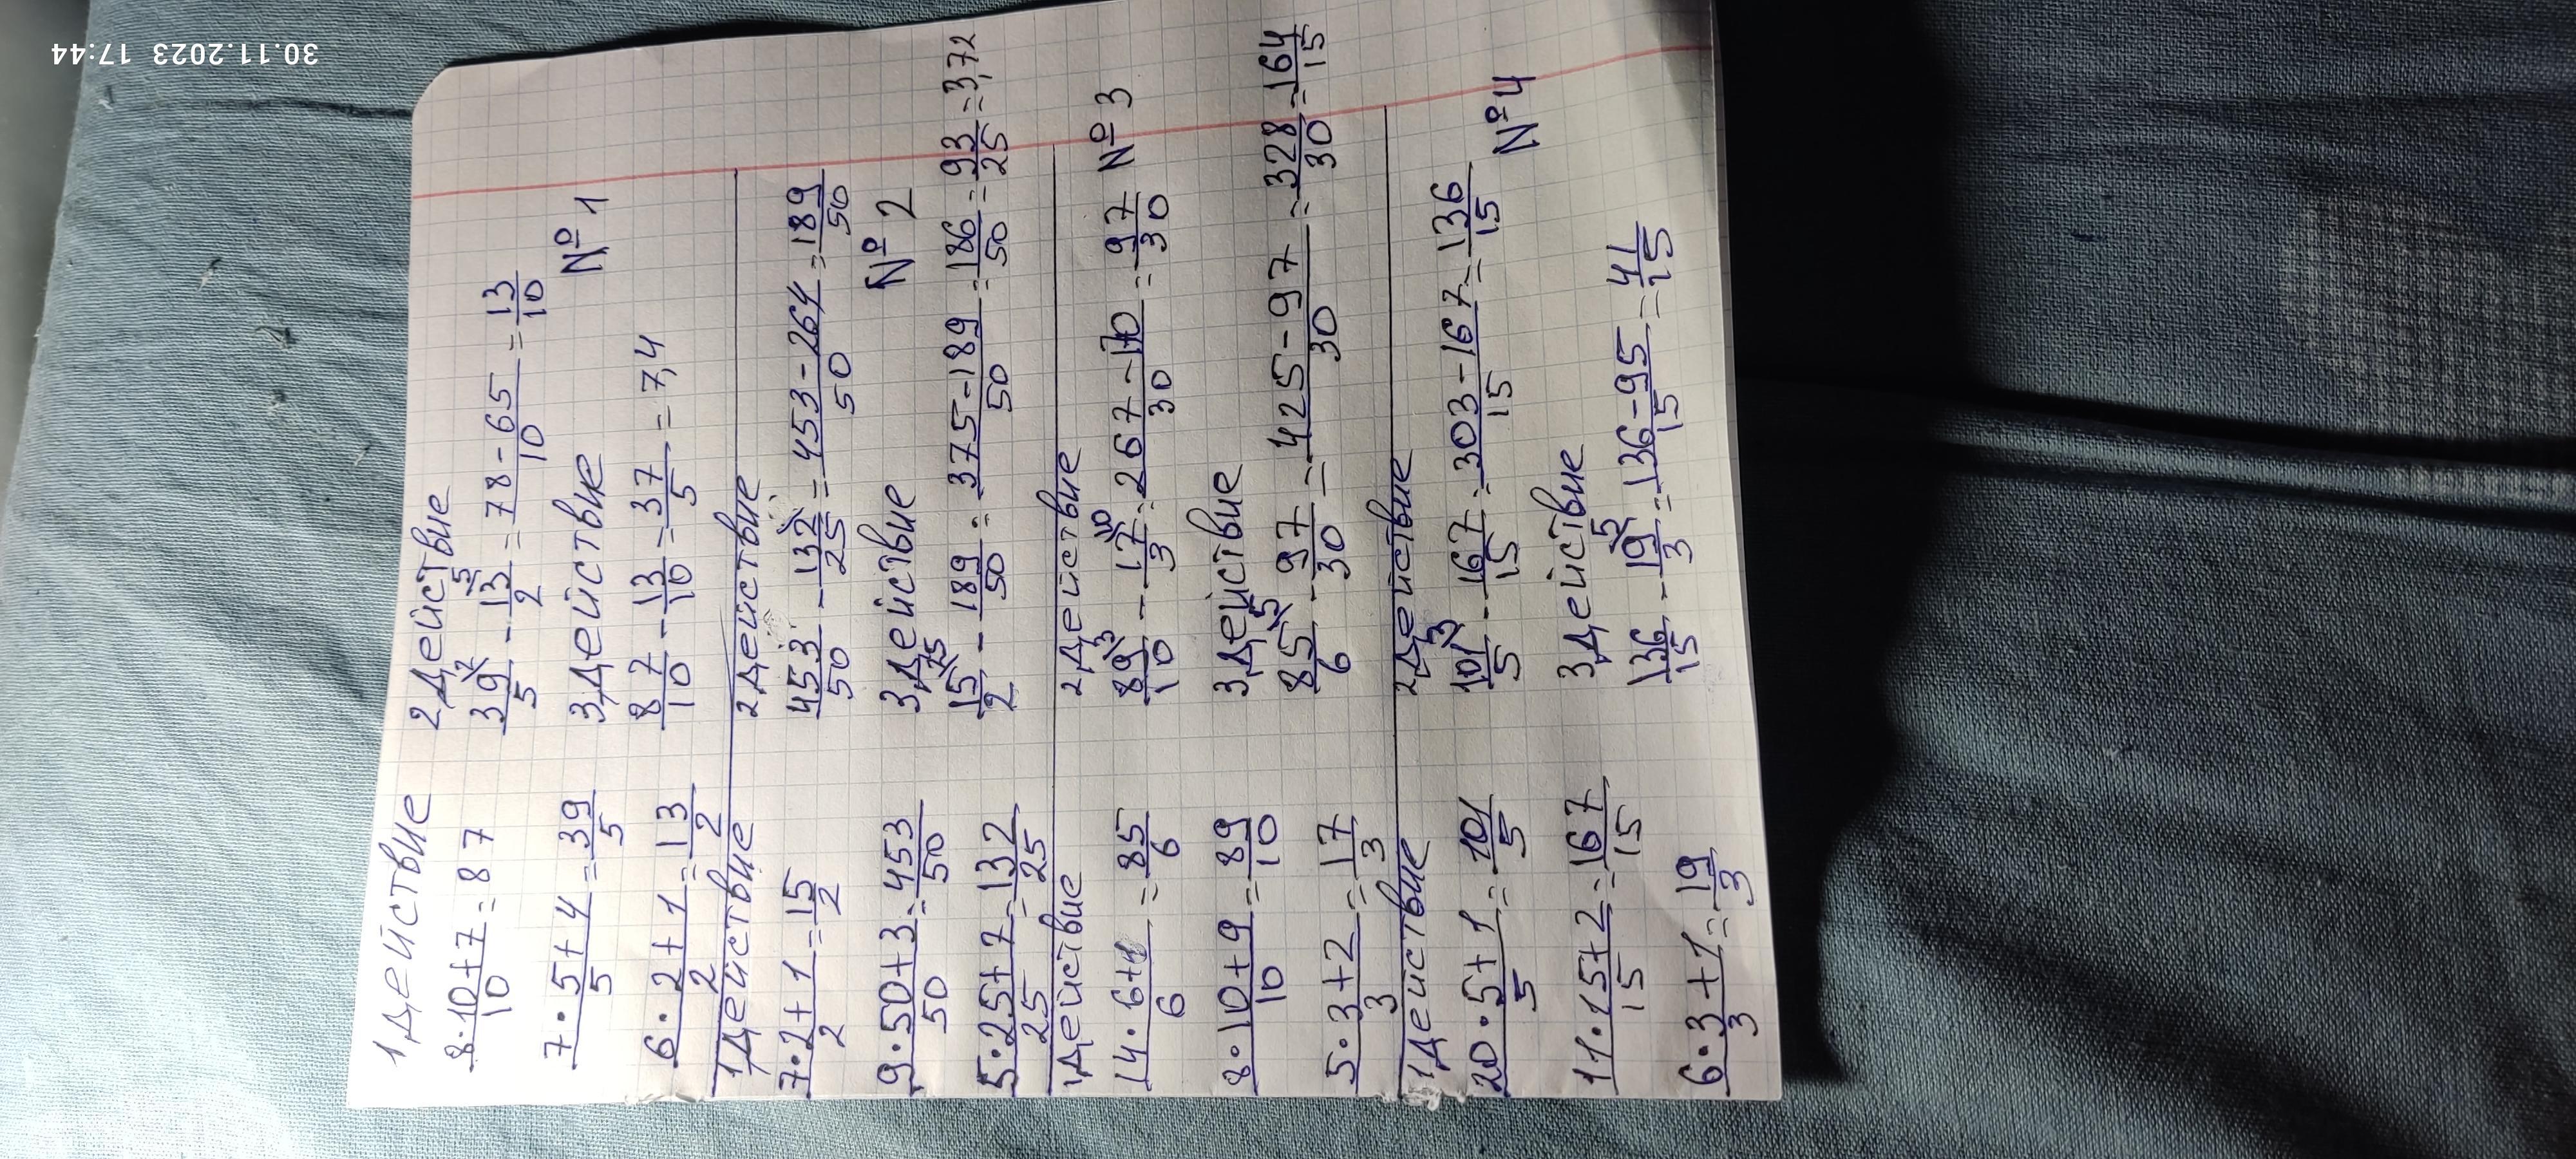 30.11.2023 17:44
1 действие
8·10+7/10 = 87
7·5+4/5 = 39/5
6·2+1/2 = 13/2
2 действие
39\2/5 - 13\5/2 = 78-65/10 = 13/10
№ 1
3 действие
87/10 - 13/10 = 37/5 = 7,4
1 действие
7·2+1/2 = 15/2
9·50+3/50 = 453/50
5·25+7/25 = 132/25
2 действие
453/50 - 132/25 = 453-264/50 = 189/50
№ 2
3 действие
15\25/2 - 189/50 = 375-189/50 = 186/50 = 93/25 = 3,72
1 действие
14·6+1/6 = 85/6
8·10+9/10 = 89/10
5·3+2/3 = 17/3
2 действие
89\3/10 - 17\10/3 = 267-170/30 = 97/30
№ 3
3 действие
85\5/6 - 97/30 = 425-97/30 = 328/30 = 164/15
1 действие
20·5+1/5 = 101/5
11·15+2/15 = 167/15
6·3+1/3 = 19/3
2 действие
101\3/5 - 167/15 = 303-167/15 = 136/15
№ 4
3 действие
136/15 - 19\5/3 = 136-95/15 = 41/15